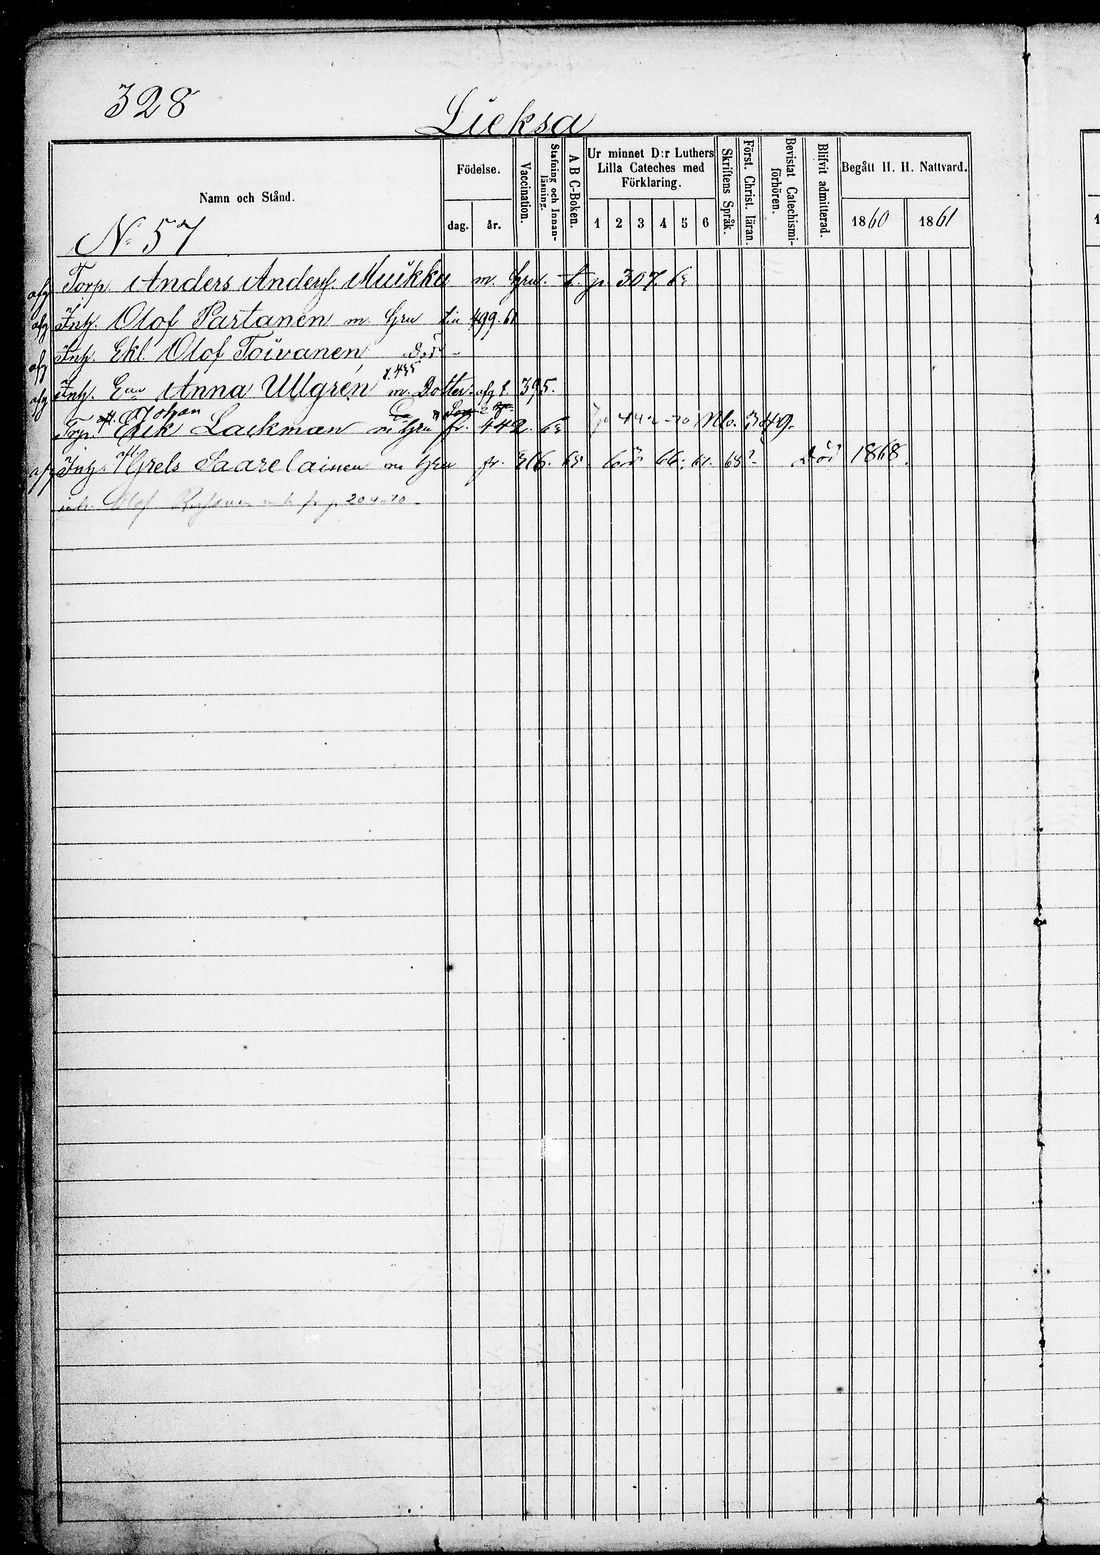 328
Lieksa
Namn och Stånd.
Födelse.
dag.
år.
Vaccination.
Stafning och Innanläsning.
A B C-Boken.
Ur minnet D:r Luthers
Lilla Cateches med
Förklaring.
1 2 3 4 5 6
Skriftens Språk.
Först. Christ. läran.
Bevistat Catechismi-
förhören.
Blifvit admitterad.
Begått H. H. Nattvard.
1860 1861
N. 57
afg Torp. Anders Andersf. Muikku m. Hru. t. p. 307. 62
afg Inh. Olof Partanen m. Hru 499. 61
afg Inh. Ekl. Olof Toivanen Död
afg Inh. Anna Ullgren m. Dotter. afg t. 395.
p. 435
Johan
Torp. Erik Lackman m Hru fr. 442. 349.
afg Inh. Grels Saarelainen m Hru fr. 316. 65. 66. 61. 68. Död 1868.
inh. Olof